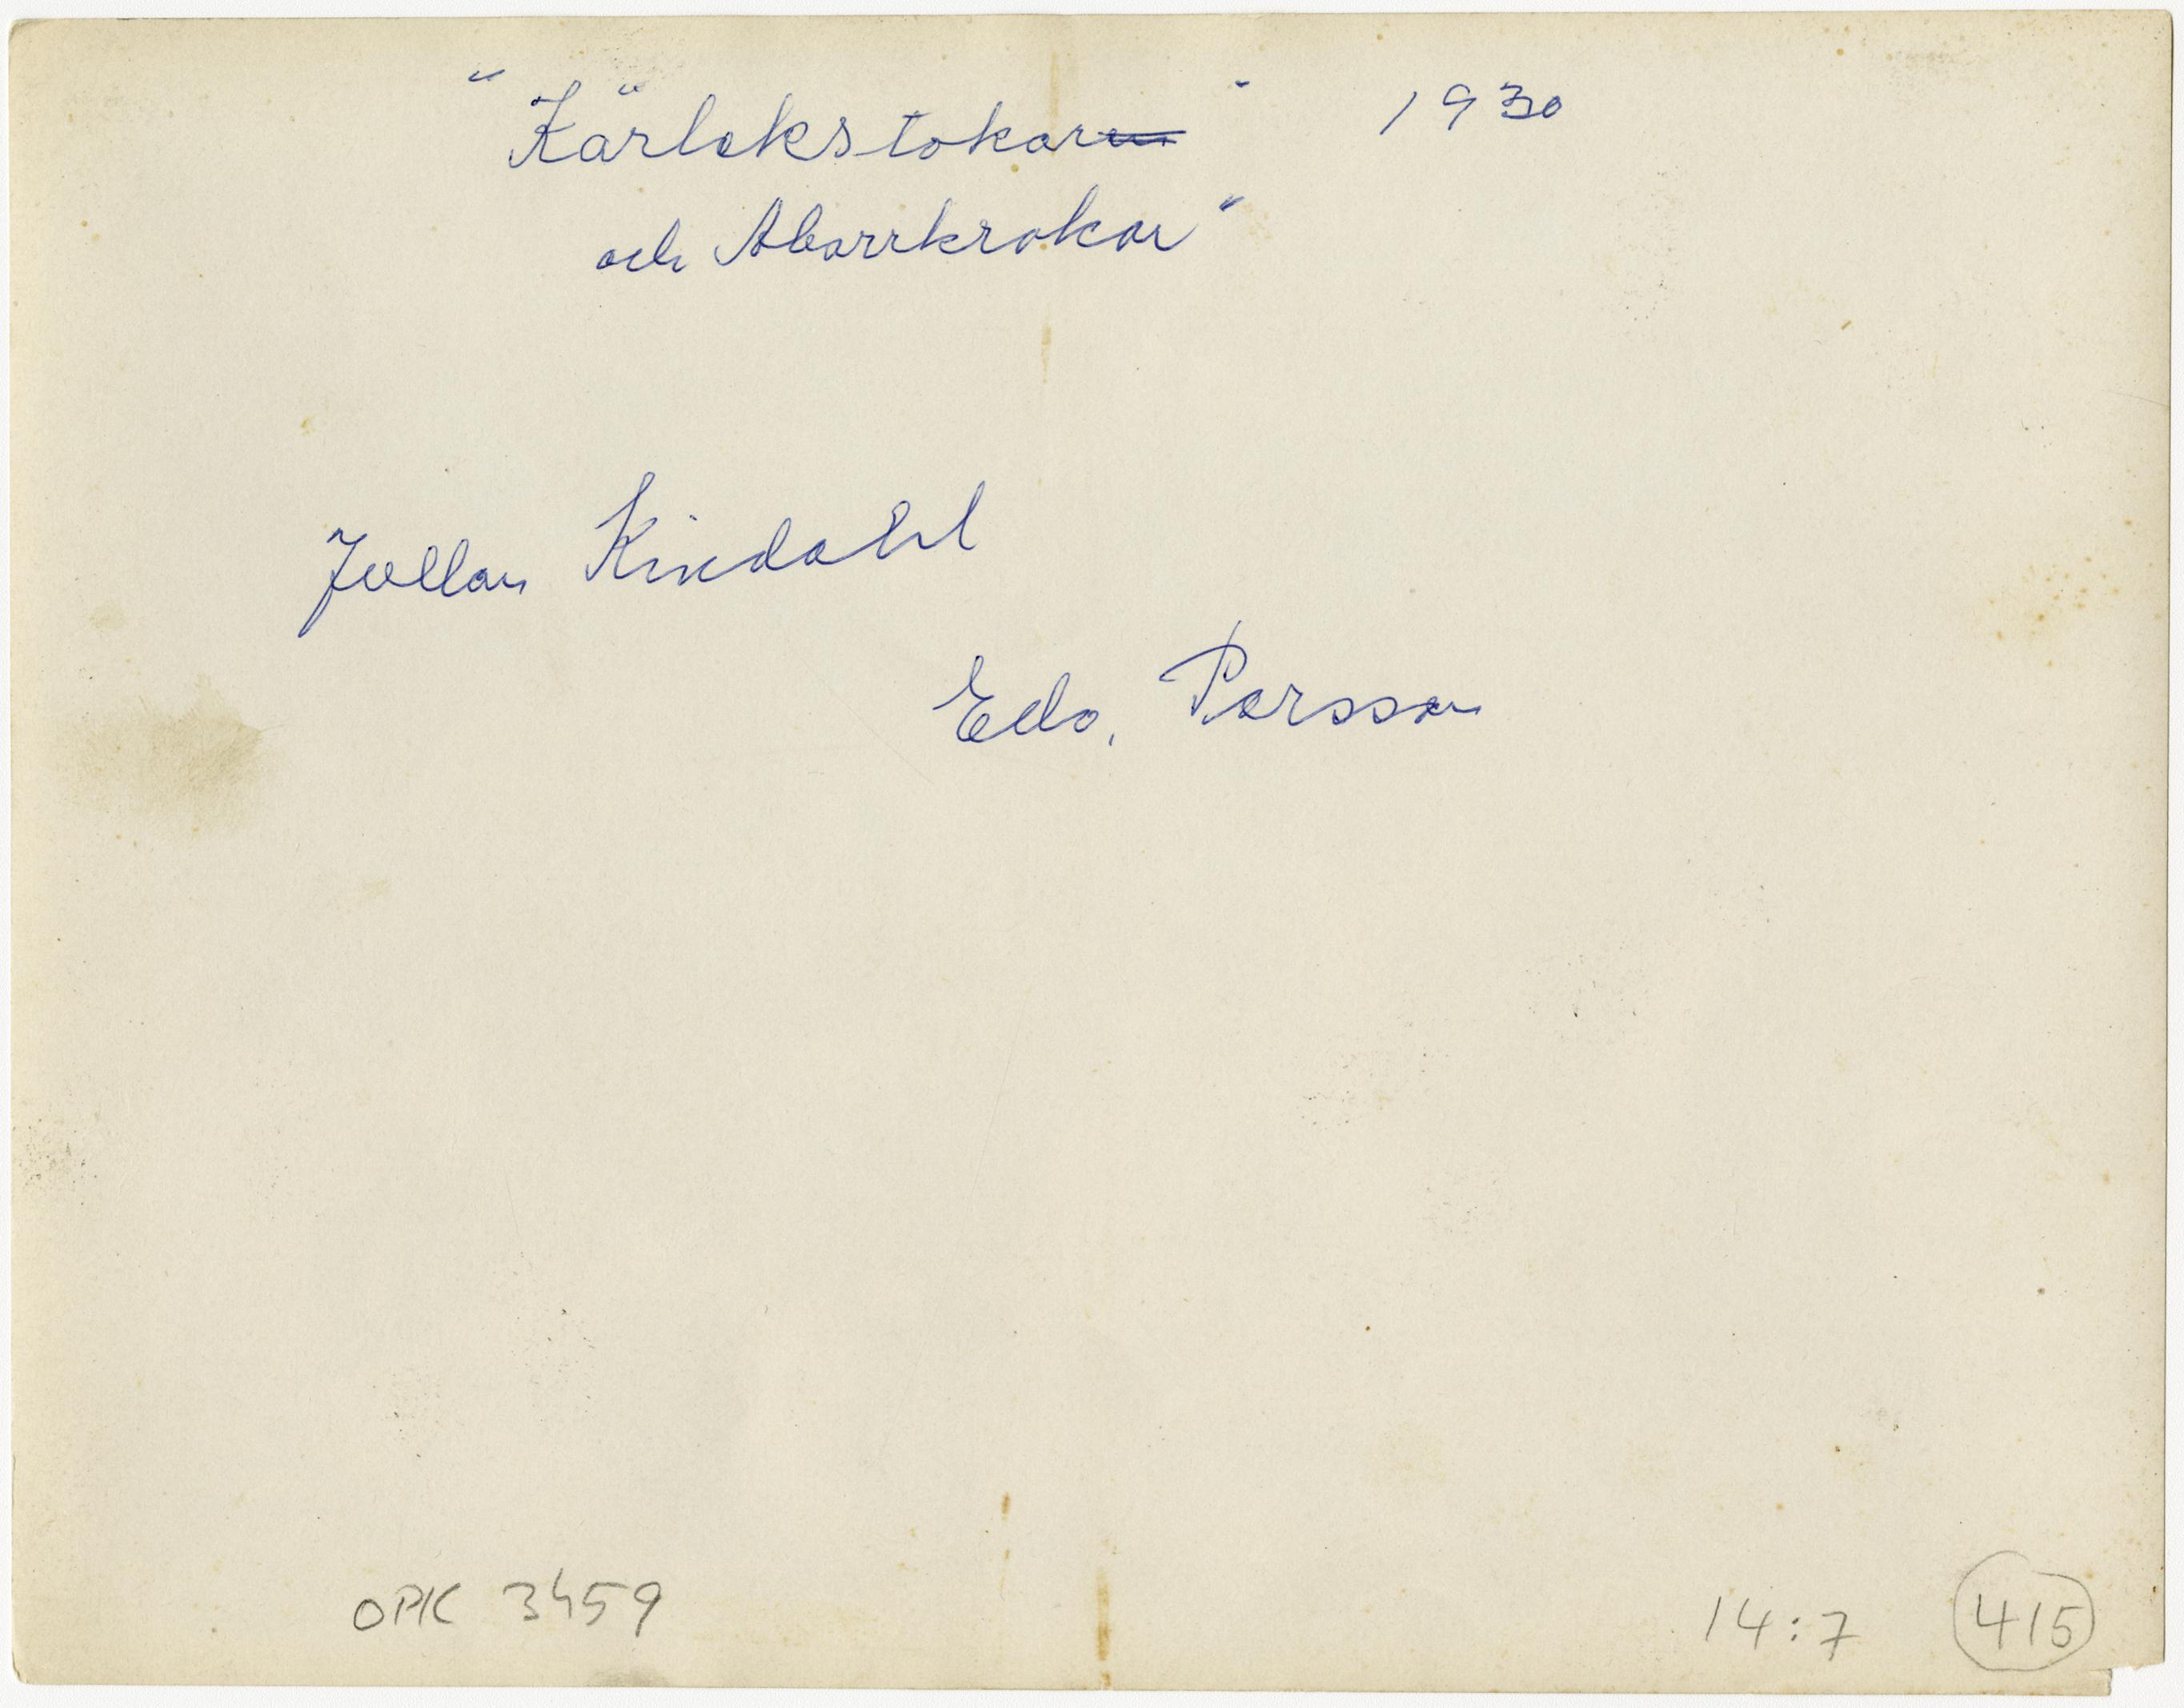 "Kärlekstokar" 1930
och Aborrkrokar"
Jullan Kindahl
Edv. Persson
OPK 3459
14:7 415